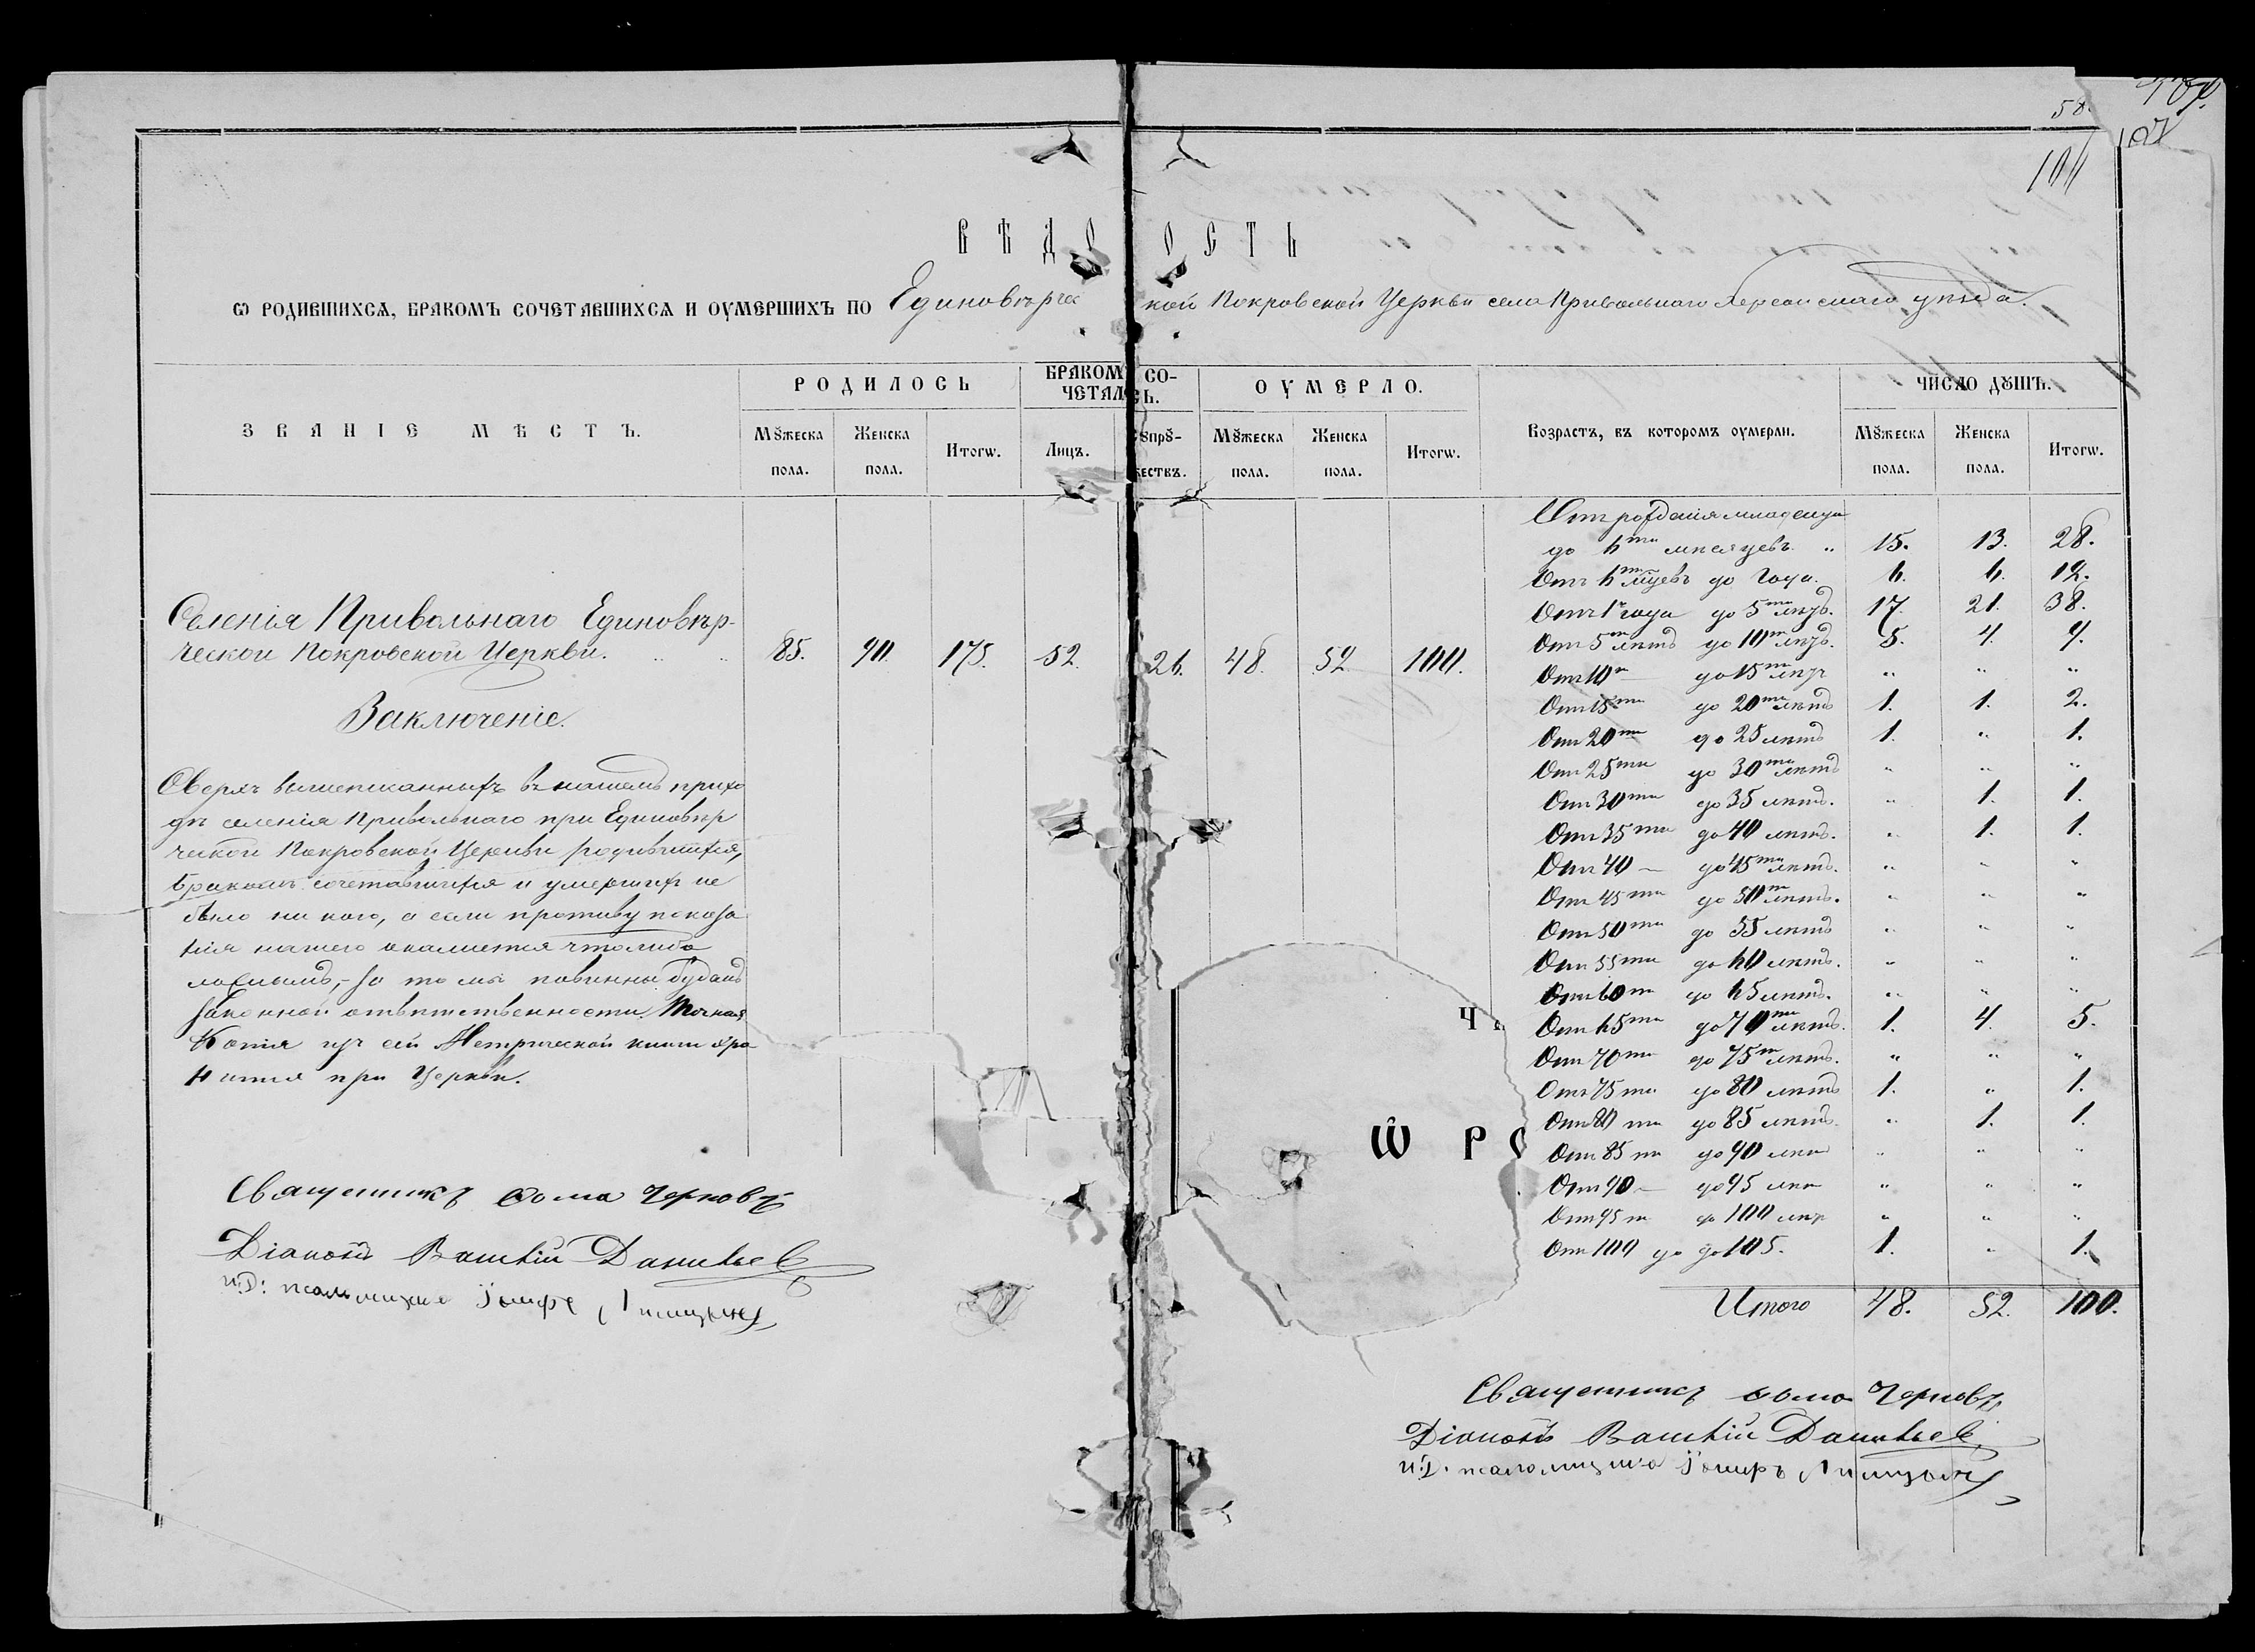 58.
107
100
ВѢДО ОСТЬ
Ѡ РОДИВШИХСѦ, БРАКОМЪ СОЧЕТАВШИХСѦ И ОУМЕРШИХЪ ПО Единовѣрчес кой Покровской Церкви села Привольнаго Херсонскаго уѣзда.
ЗВАНІЕ МѢСТЪ.
РОДИЛОСЬ
БРАКОМЪ СО-
ЧЕТАЛОСЬ.
ОУМЕРЛО.
Возрастъ, въ которомъ оумерли.
ЧИСЛО ДꙊШЪ.
Мꙋжеска пола.
Женска пола.
Итогѡ.
Лицъ.
Сꙋпрꙋ-
жествъ.
Мꙋжеска пола.
Женска пола.
Итогѡ.
Мꙋжеска пола.
Женска пола.
Итогѡ.
Селенія Привольнаго Единовѣр-
ческой Покровской Церкви. 85. 90. 175. 52. 26. 48. 52. 100.
Заключеніе.
Сверхъ вышеписанныхъ въ нашемъ прихо
дѣ селенія Привольнаго при Единовѣр
ческой Покровской Церкви родившихся,
бракомъ сочетавшихся и умершихъ не
было ни кого, а если противу показа
нія нашего окажется что либо
ложнымъ,- за то мы повинны будемъ
законной отвѣтственности. Точная
Копія изъ сей Метрической книги хра
нится при Церкви.
Священникъ Ѳома Черновъ
Діаконъ Василій Данильев
и.д: псаломщика
Отъ рожденія младенца
до 6ти мѣсяцевъ. „ 15. 13. 28.
Отъ 6ти мѣцевъ до Года. 6. 6. 12.
Отъ 1го года до 5ти лѣтъ. 17. 21. 38.
Отъ 5ти лѣтъ до 10ти лѣтъ. 5. 4. 9.
Отъ 10ти до 15ти лѣтъ „ „ „
Отъ 15ти до 20ти лѣтъ 1. 1. 2.
Отъ 20ти до 25 лѣтъ 1. „ 1.
Отъ 25ти до 30ти лѣтъ „ „ „
Отъ 30ти до 35 лѣтъ. „ 1. 1.
Отъ 35ти до 40 лѣтъ. „ 1. 1.
Отъ 40 — до 45ти лѣтъ. „ „ „
Отъ 45ти до 50ти лѣтъ. „ „ „
Отъ 50ти до 55 лѣтъ „ „ „
Отъ 55ти до 60 лѣтъ. „ „ „
Отъ 60ти до 65 лѣтъ. „ „ „
Ч Отъ 65ти до 70ти лѣтъ. 1. 4. 5.
Отъ 70ти до 75ти лѣтъ. „ „ „
Отъ 75ти до 80 лѣтъ 1. „ 1.
Ѿ РО Отъ 80ти до 85 лѣтъ. „ 1. 1.
Отъ 85ти до 90 лѣтъ „ „ „
Отъ 90 — до 95 лѣтъ „ „ „
Отъ 95ти до 100 лѣтъ „ „ „
Отъ 100 до до 105. 1. „ 1.
Итого 48. 52. 100.
Священникъ Ѳома Черновъ
Діаконъ Василій Данильев
и.д. псаломщика